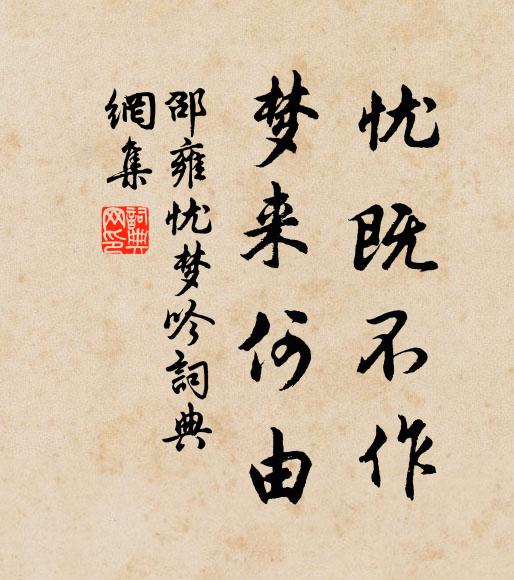 忧既不作
梦来何由
邵雍忧梦吟詞典
網集
詞典网印